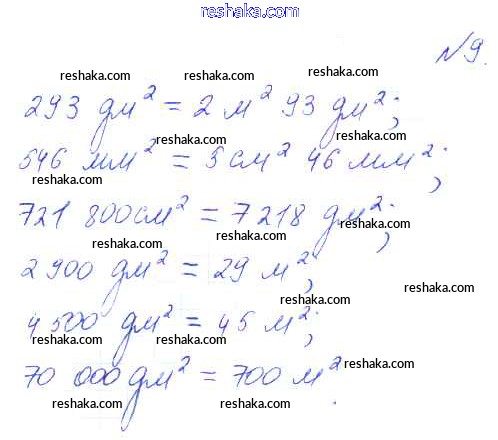 reshaka.com
№9.
reshaka.com reshaka.com reshaka.com
293 дм² = 2 м² 93 дм²;
reshaka.com reshaka.com
546 мм² = 5 см² 46 мм²;
reshaka.com reshaka.com
721 800 см² = 7218 дм²;
reshaka.com reshaka.com
2 900 дм² = 29 м²;
reshaka.com reshaka.com
4 500 дм² = 45 м²;
reshaka.com reshaka.com
70 000 дм² = 700 м².
reshaka.com reshaka.com